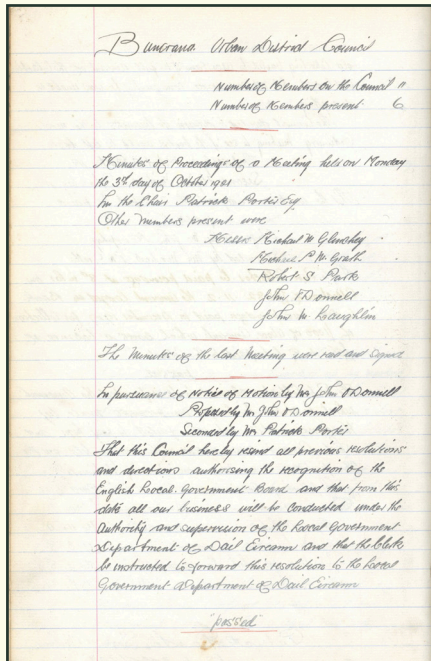 Buncrana Urban District Council
Number of Members on the Council 11
Number of Members present 6
Minutes of Proceedings of a Meeting held on Monday
the 3rd day of October 1921
In the Chair Patrick Porter Esq
Other Members present were
Messrs Michael M Glinchey
Michael P McGrath
Robert S Park
John O'Donnell
John McLaughlin
The Minutes of the last Meeting were read and signed
In pursuance of Notice of Motion by Mr John O'Donnell
Proposed by Mr John O'Donnell
Seconded by Mr Patrick Porter
That this Council hereby resind all previous resolutions
and directions authorising the recognition of the
English Local Government Board and that from this
date all our business will be conducted under the
authority and supervision of the Local Government
Department of Dail Eireann and that the Clerk
be instructed to forward this resolution to the Local
Government Department of Dail Eireann
"passed"